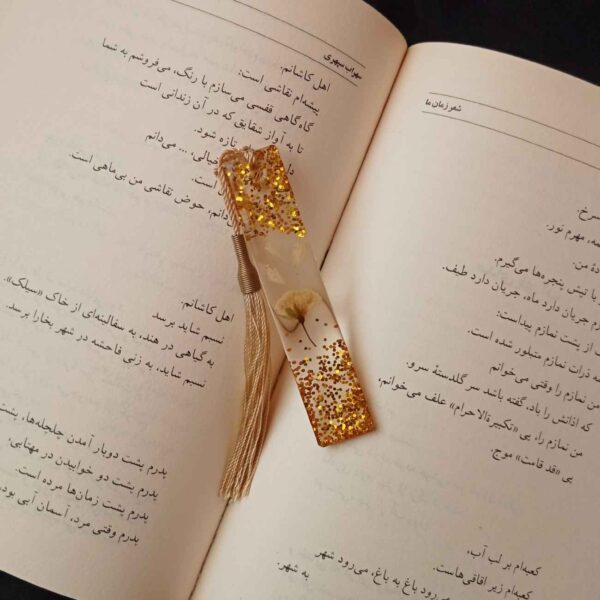 شعر زمان ما
سرخ
مهرم نور.
من.
با تپش پنجره‌ها می‌گیرم.
جریان دارد ماه، جریان دارد طیف.
از پشت نمازم پیداست:
ذرات نمازم متبلور شده است.
من نمازم را وقتی می‌خوانم
که اذانش را باد، گفته باشد سر گلدستهٔ سرو.
من نمازم را، پی «تکبیرةالاحرام» علف می‌خوانم،
پی «قد قامت» موج.
کعبه‌ام بر لب آب،
کعبه‌ام زیر اقاقی‌هاست.
می‌رود باغ به باغ، می‌رود شهر
به شهر.
سهراب سپهری
اهل کاشانم.
پیشه‌ام نقاشی است:
گاه‌گاهی قفسی می‌سازم با رنگ، می‌فروشم به شما
تا به آواز شقایق که در آن زندانی است
تازه شود.
خیالی، ... می‌دانم
است.
دانم، حوض نقاشی من بی‌ماهی است.
اهل کاشانم.
نسبم شاید برسد
به گیاهی در هند، به سفالینه‌ای از خاک «سیلک».
نسبم شاید، به زنی فاحشه در شهر بخارا برسد.
پدرم پشت دوبار آمدن چلچله‌ها، پشت
پدرم پشت دو خوابیدن در مهتابی،
پدرم پشت زمان‌ها مرده است.
پدرم وقتی مرد، آسمان آبی بود،